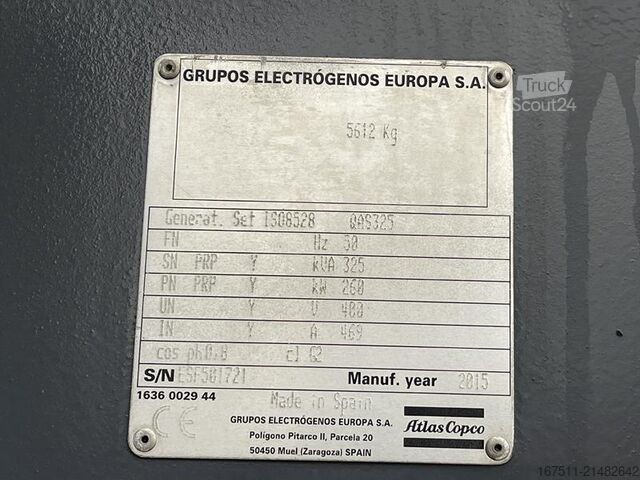 GRUPOS ELECTRÓGENOS EUROPA S.A.
Truck
Scout24
5612 Kg
Generat. Set ISO8528 QAS325
FN Hz 50
SN PRP Y kVA 325
PN PRP Y kW 260
UN Y V 400
IN Y A 469
cos ph0,8 cl G2
S/N ESF501721 Manuf. year 2015
1636 0029 44 Made in Spain
CE
GRUPOS ELECTRÓGENOS EUROPA S.A.
Polígono Pitarco II, Parcela 20
50450 Muel (Zaragoza) SPAIN
Atlas Copco
167511-21482642